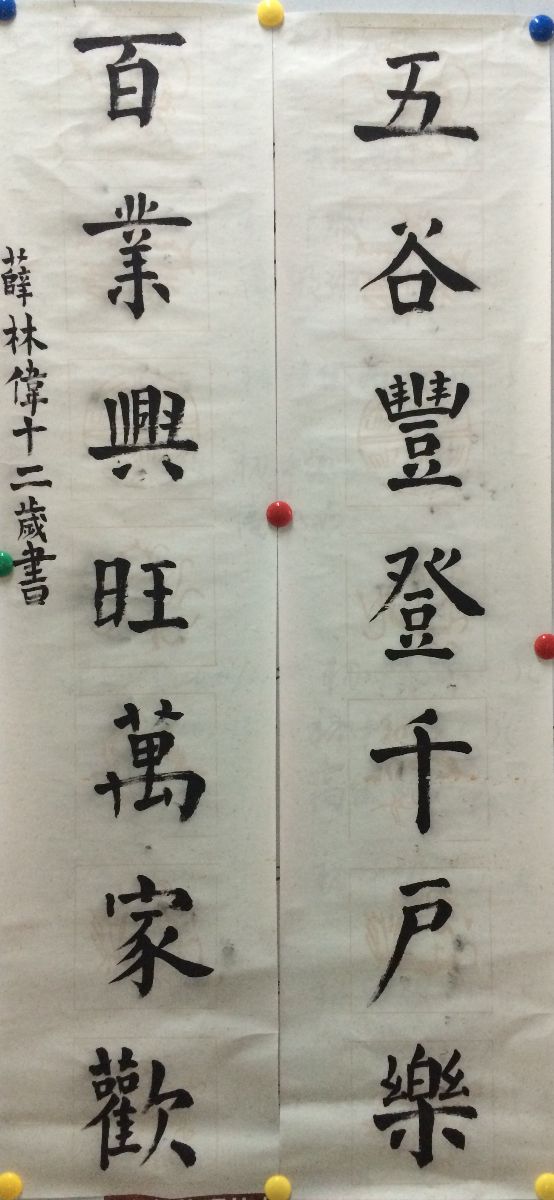 五谷豐登千戶樂
百業興旺萬家歡
薛林偉十二歲書